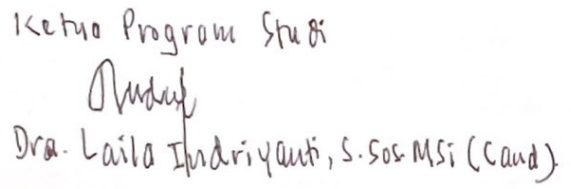 Ketua Program Studi
Dra. Laila Indriyanti, S.Sos. MSi (Cand).